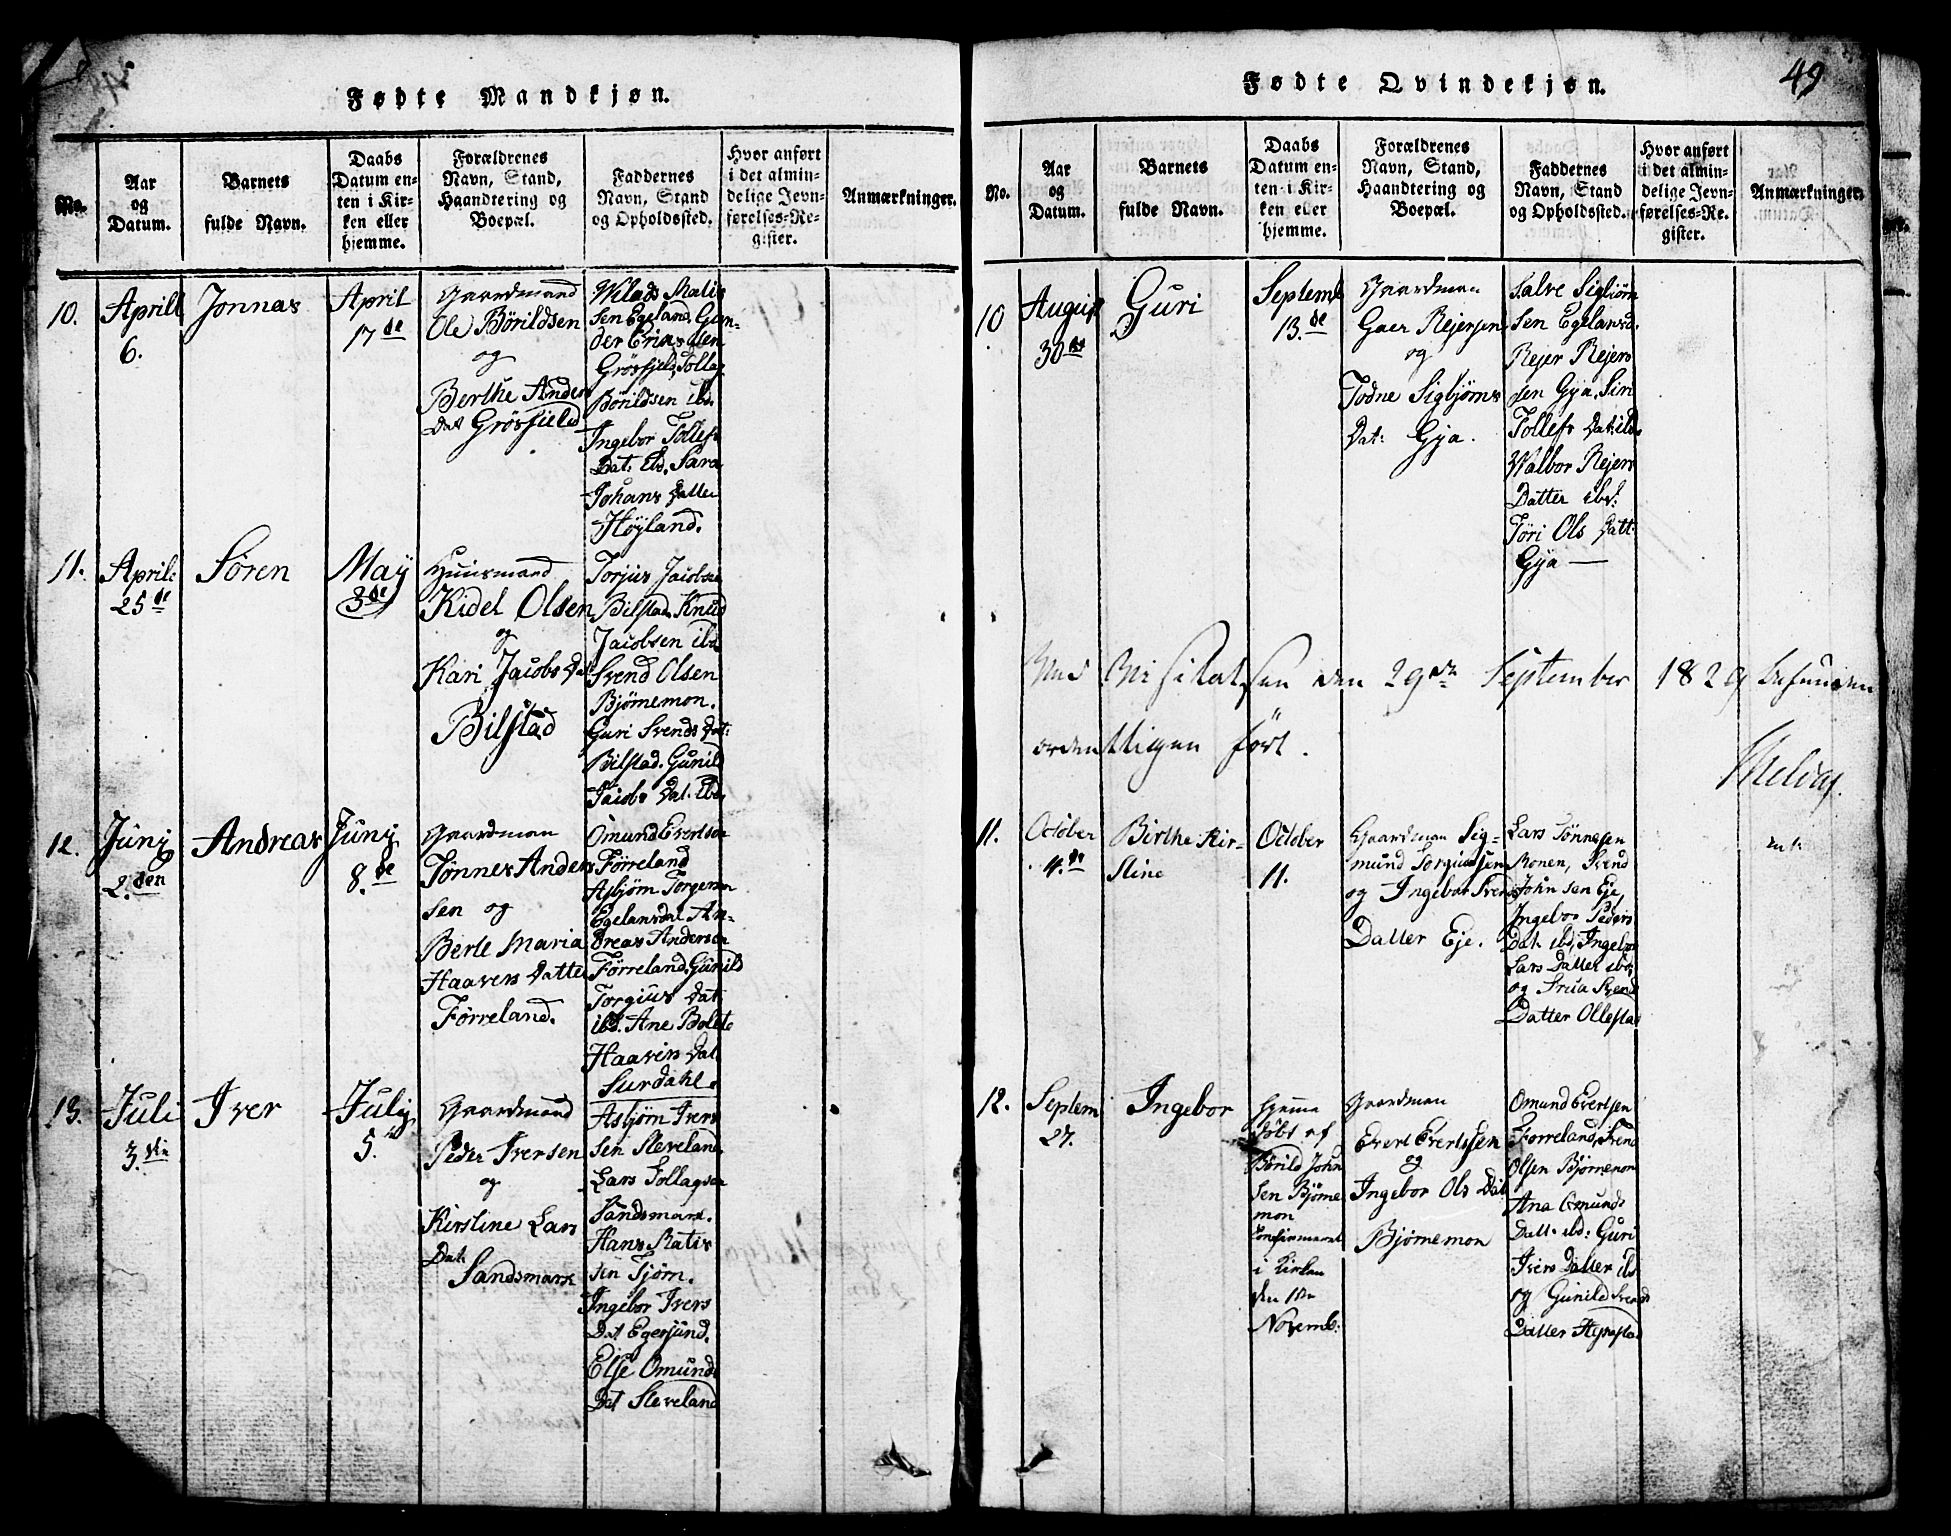 Fødte Mandkjøn.
No.
Aar
og
Datum.
Barnets
fulde Navn.
Daabs
Datum en-
ten i Kir-
ken eller
hjemme.
Forældrenes
Navn, Stand,
Haandtering og
Boepæl.
Faddernes
Navn, Stand
og Opholdssted.
Hvor anført
i det almin-
delige Jevn-
førelses-Re-
gister.
Anmærkninger.
10.
Aprill
6.
Jonnas
April
17de
Gaardmand
Ole Börildsen
og
Berthe Anders
Dat Grösfield
Wilads Matis
sen Egeland, Gun-
der Eriks sen
Grösfjeld, Tollag
Börildsen ibd.
Ingebor Tollefs
Dat. ibd. Sara
Johans Datter
Höyland.
11.
April
25de
Sören
May
3de
Huusmand
Kidel Olsen
og
Kari Jacobs Dat
Bilstad
Torjus Jacobsen
Bilstad Knud
Jacobsen ibd
Svend Olsen
Bjørnemon.
Guri Svends Dat:
Bilstad. Gunild
Jacobs Dat. ibd.
12.
Junj
2.den
Andreas
Junj
8.de
Gaardman
Tönnes Anders
sen og
Berte Maria
Haavers Datter
Førreland.
Omund Evertsen
Førreland
Asbjørn Torgersen
Egelandsdal An-
dreas Andersen
Førreland, Gunild
Torgius Dat
ibd. Ane Bolete
Haavers Dat
Surdahl.
13.
Juli
3.die
Iver
July
5.
Gaardmand
Peder Iversen
og
Kirstine Lars
Dat.
Sandsmark
Asbjørn Ivers
sen Sleveland
Lars Tollagsen
Sandsmark.
Hans Matis
sen Tjørn.
Ingebor Ivers
Dat Egersund.
Else Omunds
Dat Sleveland
Fødte Qvindekjøn.
49
No.
Aar
og
Datum.
Barnets
fulde Navn.
Daabs
Datum en-
ten i Kir-
ken eller
hjemme.
Forældrenes
Navn, Stand,
Haandtering og
Boepæl.
Faddernes
Navn, Stand
og Opholdssted.
Hvor anført
i det almin-
delige Jevn-
førelses-Re-
gister.
Anmærkninger.
10
August
30te
Guri
Septemb
13.de
Gaardman
Gaer Rejersen
og
Todne Sigbjørns
Dat: Gya.
Salve Sigbiørn
sen Egelansd.
Rejer Rejers
sen Gya, Siri
Tollefs Dat: ibd.
Walbor Rejers
Datter ibd:
Töri Ols Datt:
Gya —
Ved Visitatsen den 29de September 1829 befunden
ordentligen ført.
11.
October
4.de
Birthe Kir-
stine
October
11.
Gaardman Sig-
mund Torgiussen
og Ingebor Svends
Datter Eje.
Lars Tönnesen
Monen, Svend
John sen Eje,
Ingebor Peders
Dat. ibd, Ingebor
Lars Datter ibd,
og Svend
Datter Ollestad
12.
Septem
27.
Ingebor
Hjemme
døbt af
Börild John
sen Bjørne
mon
Confirmeret
i Kirken
den 1ste
Novemb:
Gaardman
Evert Evertssen
og
Ingebor Ols Dat
Bjørnemon
Omund Evertsen
Førreland, Svend
Olsen Bjørnemon
Ana Omunds
Datt. ibd: Guri
Ivers Datter ibd
og Gunild Svends
Datter